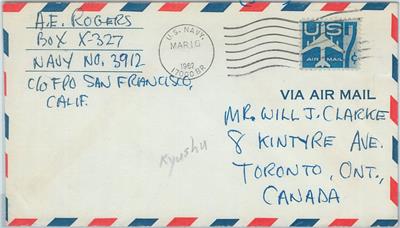 A.E. ROGERS
BOX X-327
NAVY NO. 3912
C/O FPO SAN FRANCISCO,
CALIF.
U.S. NAVY.
MAR 10
1962
17000 BR.
US
AIR MAIL
¢
VIA AIR MAIL
MR. WILL J. CLARKE
8 KINTYRE AVE.
TORONTO, ONT.,
CANADA
Kyushu